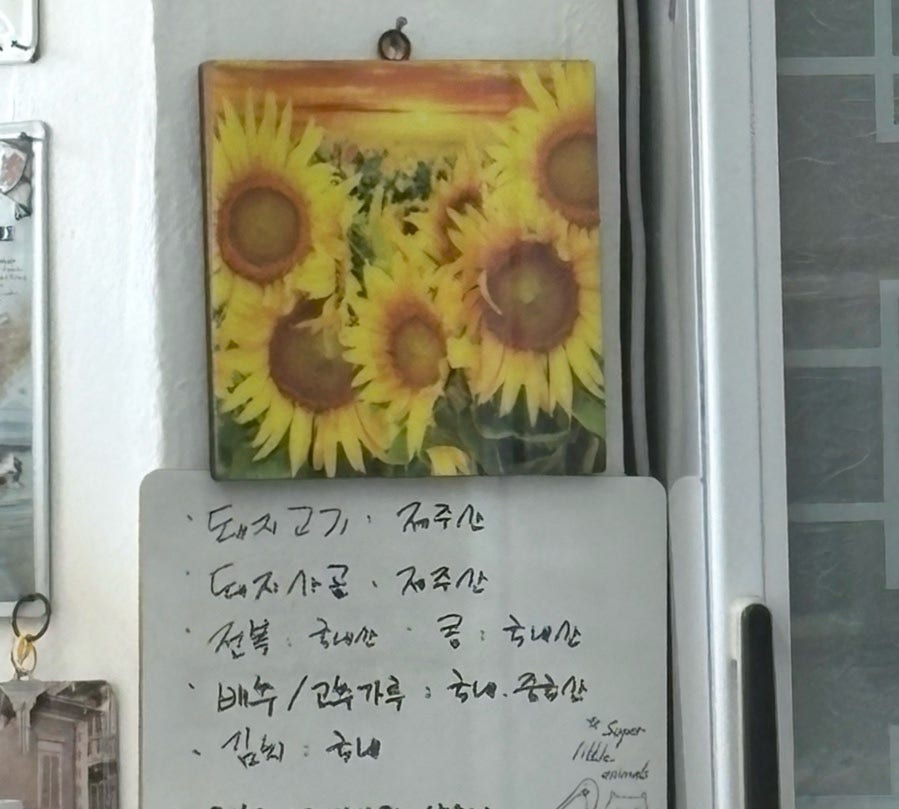 · 돼지고기 : 제주산
· 돼지사골 : 제주산
· 전복 : 국내산 · 콩 : 국내산
· 배추/고추가루 : 국내. 중국산
· 김치 : 국내
* Super
little
animals